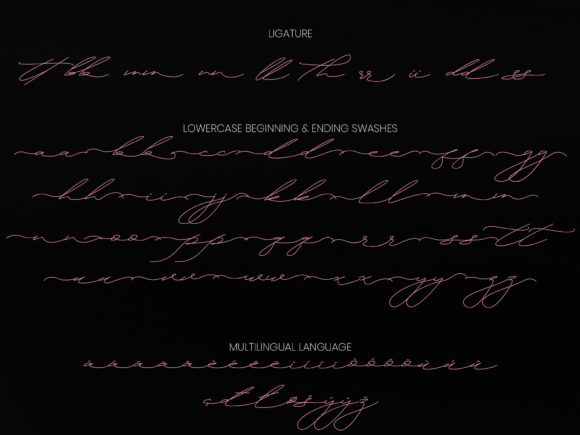 LIGATURE
tt bb mm nn ll Th rr ii dd ss
LOWERCASE BEGINNING & ENDING SWASHES
a a b b c c d d e e f f g g
h h i i j j k k l l m m
n n o o p p q q r r s s t t
u u v v w w x x y y z z
MULTILINGUAL LANGUAGE